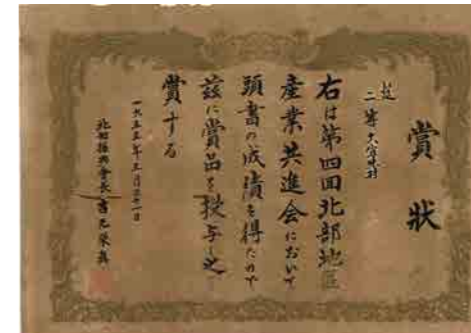 賞状
二等 大宜味村
右は第四回北部地区
産業共進会において
頭書の成績を得たので
茲に賞品を授与し之を
賞する
一九五五年三月三十一日
北部振興会長 吉元栄真